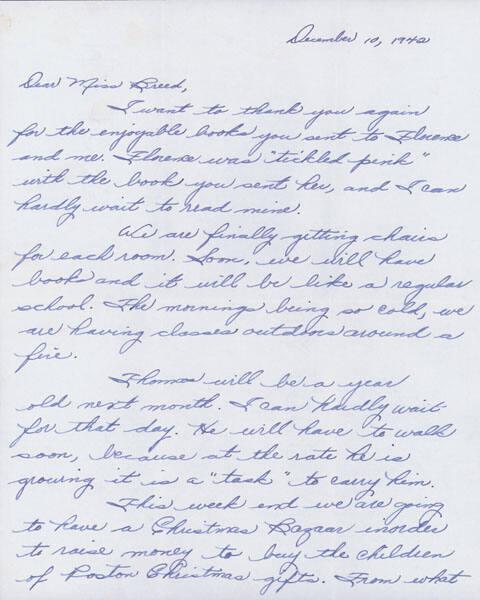 December 10, 1942
Dear Miss Breed,
I want to thank you again
for the enjoyable books you sent to Florence
and me. Florence was "tickled pink"
with the book you sent her, and I can
hardly wait to read mine.
We are finally getting chairs
for each room. Soon, we will have
books and it will be like a regular
school. The mornings being so cold, we
are having classes outdoors around a
fire.
Thomas will be a year
old next month. I can hardly wait
for that day. He will have to walk
soon, because at the rate he is
growing it is a "task" to carry him.
This week end we are going
to have a Christmas Bazaar inorder
to raise money to buy the children
of Poston Christmas gifts. From what